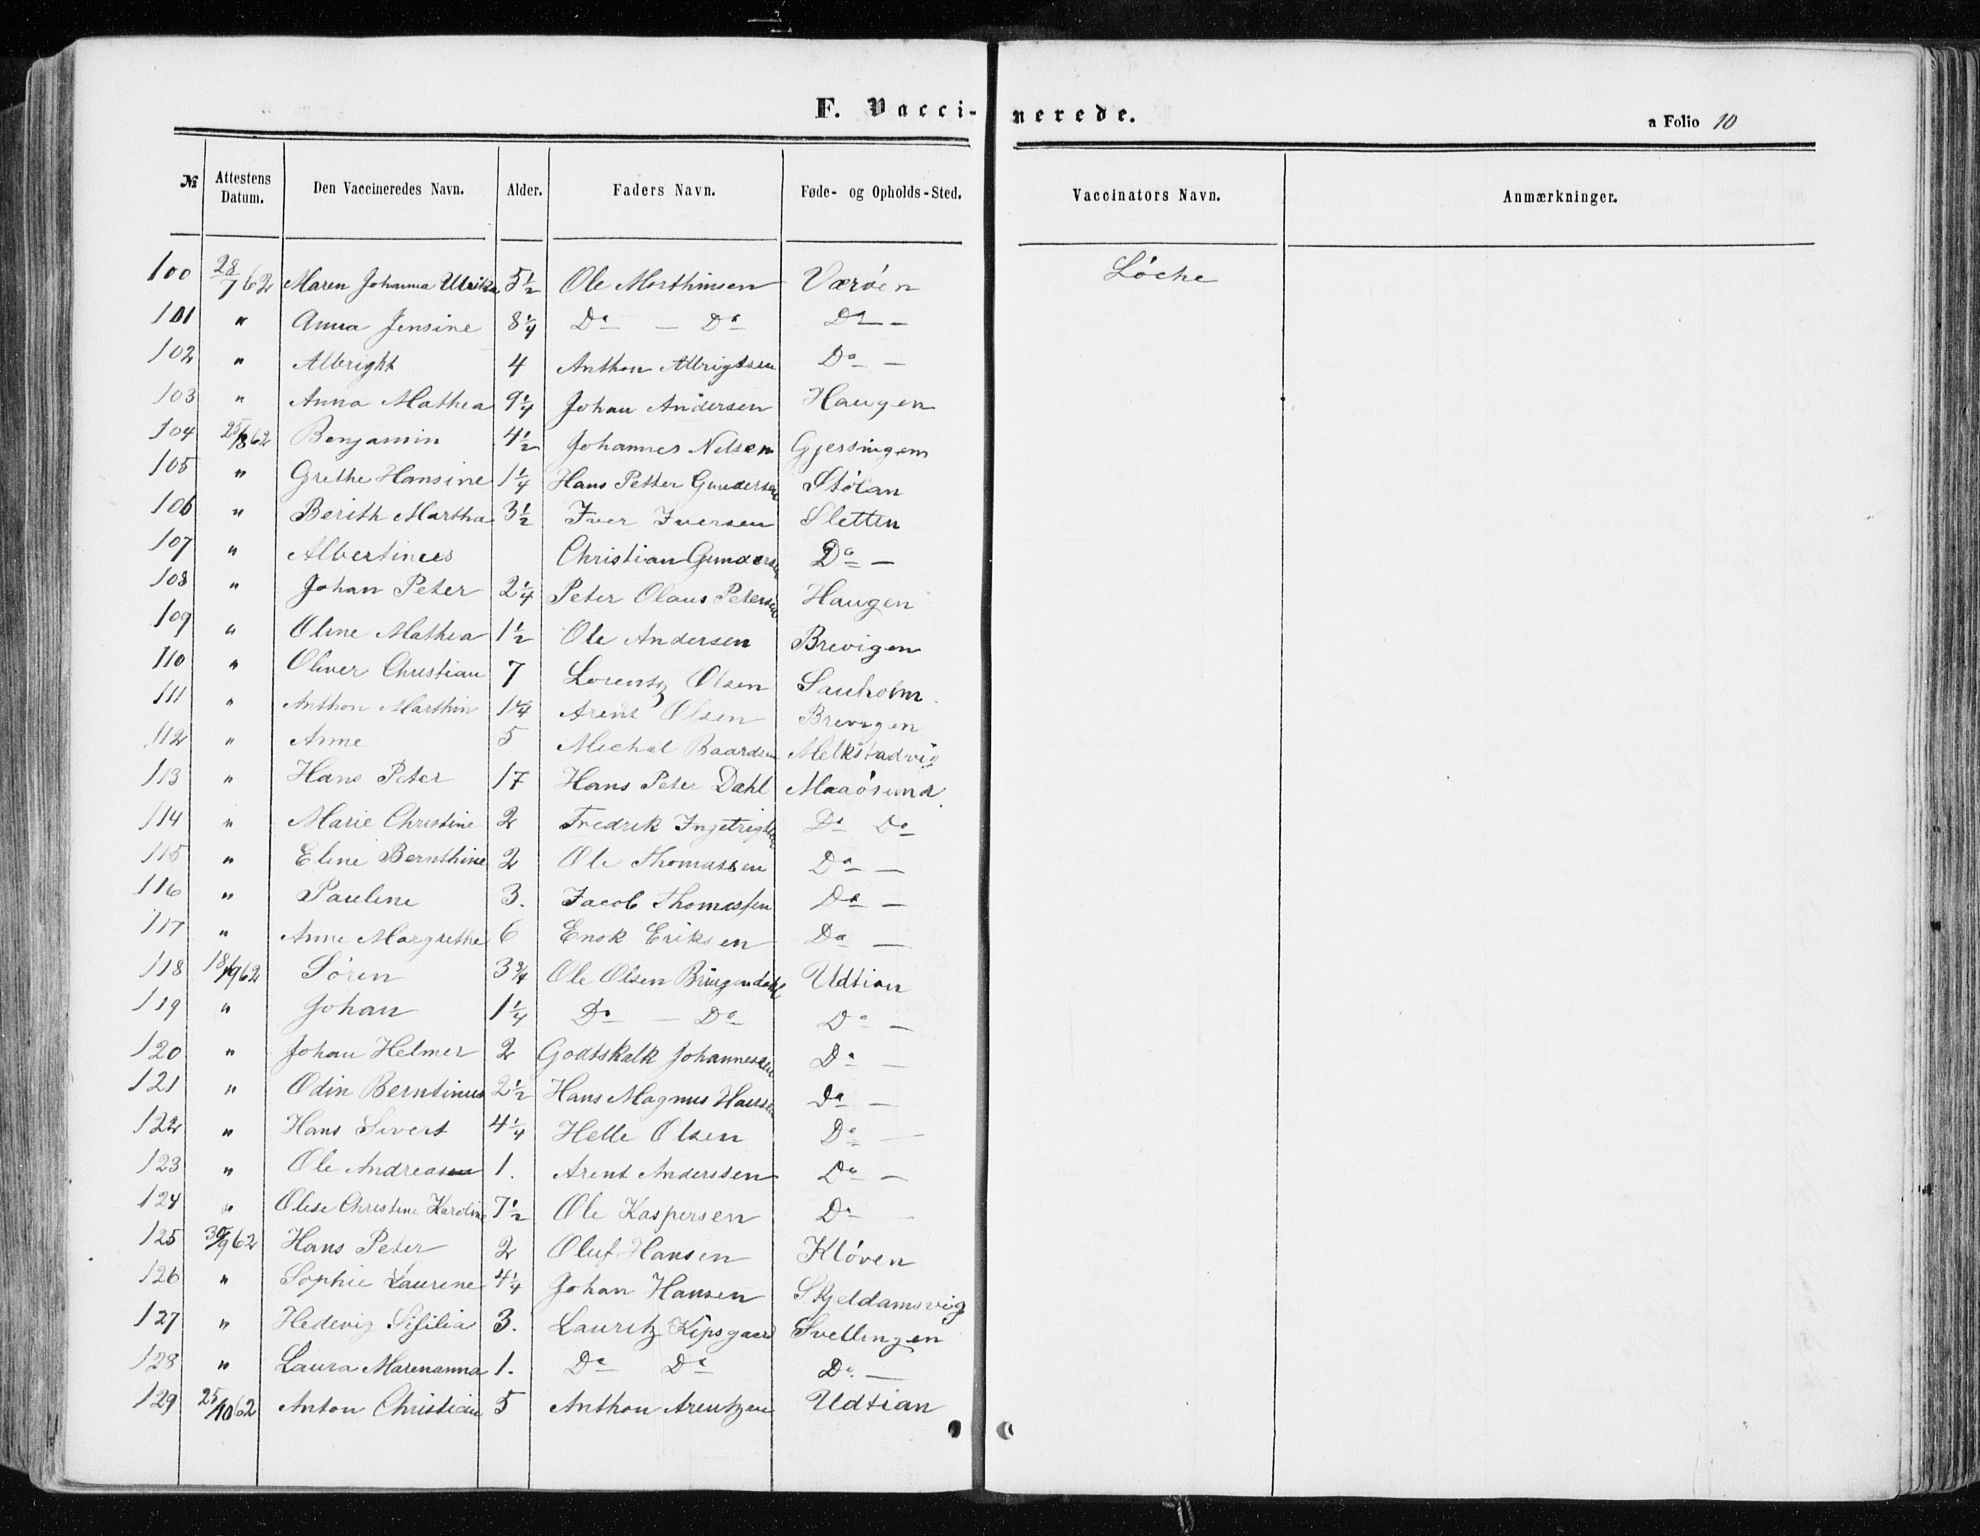 F. Vaccinerede.
a Folio 10
№ | Attestens Datum. | Den Vaccineredes Navn. | Alder. | Faders Navn. | Føde- og Opholds-Sted. | Vaccinators Navn. | Anmærkninger.
100 28/7 62 Maren Johanna Ulrika 5½ Ole Morthinsen Værøen Löche
101 " Anna Jensine 8¼ Do — Do Do —
102 " Albright 4 Anthon Albrigtsen Do —
103 " Anna Mathea 9¼ Johan Andersen Haugen
104 25/8 62 Benjamin 4½ Johannes Nilsen Gjessingen
105 " Grethe Hansine 1¼ Hans Petter Gundersen Stölan
106 " Berith Martha 3½ Iver Iversen Sletten
107 " Albertinus Christian Gundersen Do —
108 " Johan Peter 2¼ Peter Olaus Petersen Haugen
109 " Oline Mathea 1½ Ole Andersen Brevigen
110 " Oliver Christian 7 Lorentz Olsen Sauholm
111 " Anthon Marthin 1¼ Arent Olsen Brevigen
112 " Anne 5 Michal Baardsen Melkstadvig
113 " Hans Peter 17 Hans Peter Dahl Maaösund
114 " Marie Christine 2 Fredrik Do Do
115 " Eline Bernthine 2 Ole Thomassen Do —
116 " Pauline 3. Jacob Thomassen Do —
117 " Anne Margrethe 6 Enok Eriksen Do —
118 18/9 62 Sören 3¾ Ole Olsen Udtian
119 " Johan 1¼ Do — Do Do —
120 " Johan Helmer 2 Godtskalk Johannessen Do —
121 " Odin Berntinus 2½ Hans Magnus Hansen Do —
122 " Hans Sivert 4¼ Helle Olsen Do —
123 " Ole Andreas 1. Arent Anderssen Do —
124 " Olise Christine Karoline 7½ Ole Kaspersen Do —
125 30/9 62 Hans Peter 2 Oluf Hansen Klöven
126 " Sophie Laurene 4¼ Johan Hansen Skjeldamsvig
127 " Hedevig Sisilia 3. Lauritz Kipsgaard Svellingen
128 " Laura Marenanna 1. Do Do Do. —
129 25/10 62 Anton Christian 5 Anthon Arentzen Udtian